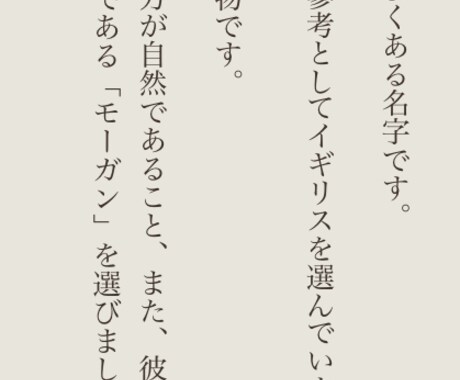 くある名字です。
参考としてイギリスを選んでい
物です。
方が自然であること、また、彼
である「モーガン」を選びまし